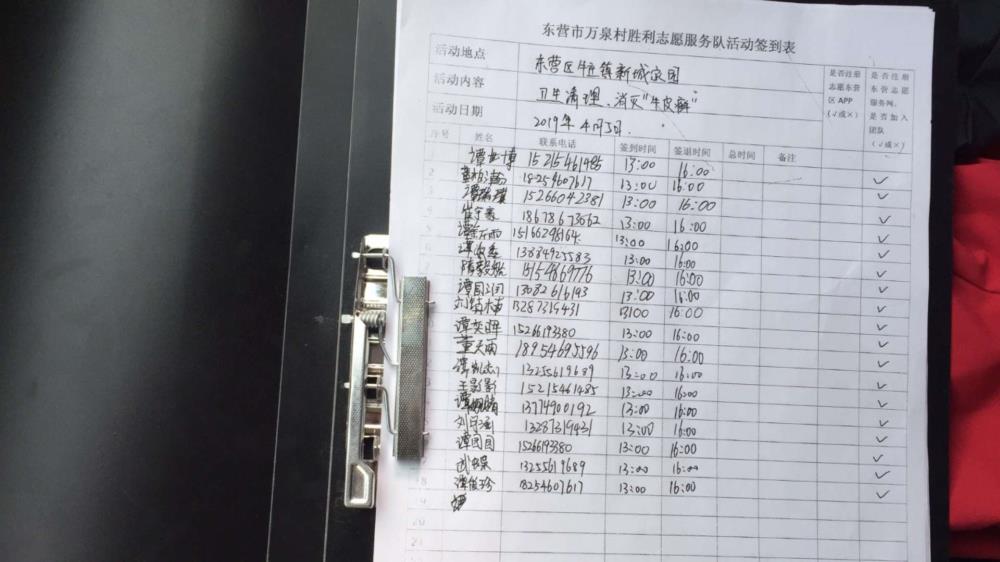 东营市万泉村胜利志愿服务队活动签到表
活动地点 东营区牛庄镇新城家园
活动内容 卫生清理、消灭"牛皮癣"
活动日期 2019年4月5日.
是否注册志愿东营区APP(√或×)
是否注册东营志愿服务网。是否加入团队(√或×)
序号 姓名 联系电话 签到时间 签退时间 总时间 备注
谭世博 15215461985 13:00 16:00
2 18254607617 13:00 16:00 ✓
15266042381 13:00 16:00 ✓
4 18678673662 13:00 16:00 ✓
5 15166298164 13:00 16:00 ✓
6 13884925583 13:00 16:00 ✓
15154869776 13:00 16:00 ✓
13082616193 13:00 16:00 ✓
13287319431 13:00 16:00 ✓
谭英晖 15266193380 13:00 16:00 ✓
董天雨 18954695596 13:00 16:00 ✓
13255619689 13:00 16:00 ✓
王影影 15215461485 13:00 16:00 ✓
13774900192 13:00 16:00 ✓
13287319431 13:00 16:00 ✓
谭园园 15266193380 13:00 16:00 ✓
13255619689 13:00 16:00 ✓
18 谭俊珍 18254607617 13:00 16:00 ✓
19 谭
20
21